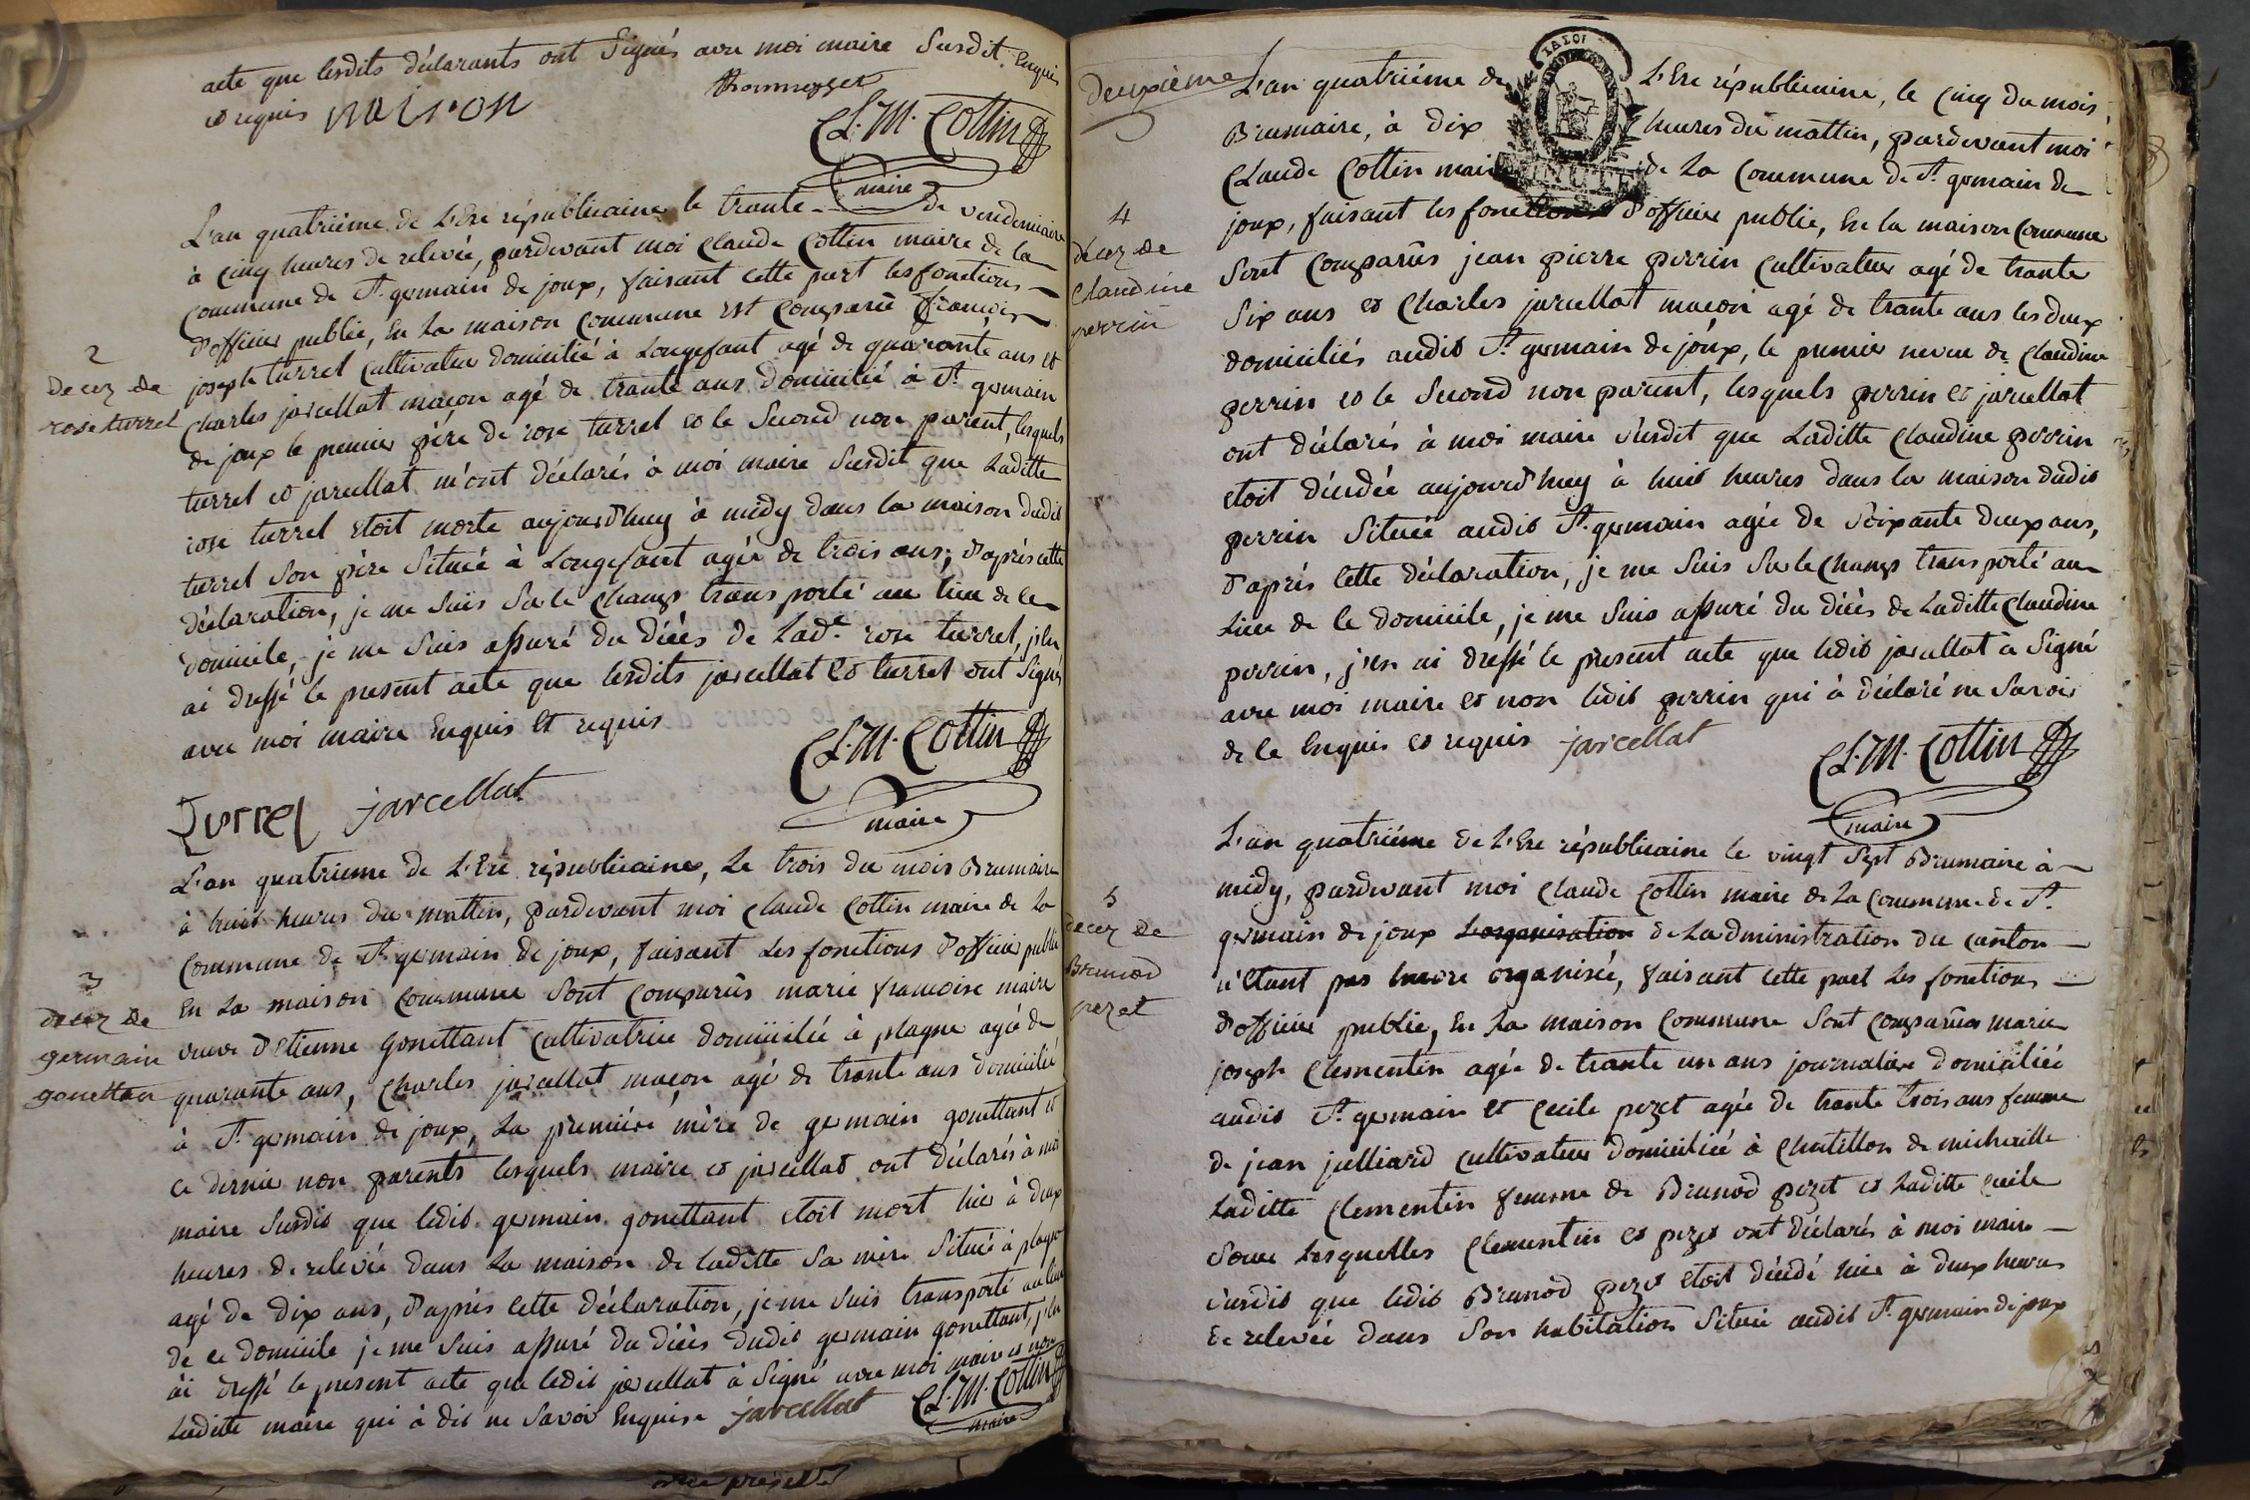 acte que lesdits déclarants ont Signés avec moi maire Susdit. Enquis
et requis
CL. M. Cottin
maire
L'an quatriéme de L'Ere républicaine le trante de vendemiaire
à Cinq heures de relevée, pardevant moi Claude Cottin maire de la
Commune de St. germain de joux, faisant cette part les fonctions
d'officier public, En La maison Commune est Comparû françois
joseph turrel Cultivateur domicilié à Longefant agé de quarante ans et
Charles jarcellat maçon agé de trante ans domicilié à St. germain
de joux le premier pére de rose turrel et le Second non parent, lesquels
turrel et jarcellat m'ont déclarés à moi maire Susdit que Laditte
rose turrel etoit morte aujourd'huy à midy dans la maison dudit
turrel Son pére Située à Longefant agée de trois ans; d'aprés cette
déclaration, je me Suis Sur le Champ transporté au lieu de ce
domicile, je me Suis assuré du décés de Lade. rose turrel, j'en
ai dressé le present acte que lesdits jarcellat et turrel ont Signés
avec moi maire Enquis et requis
2
decez de
rose turrel
CL. M. Cottin
maire
Turrel jarcellat
L'an quatrieme de L'Ere républicaine, Le trois du mois Brumaire
à huit heures du mattin, pardevant moi Claude Cottin maire de La
Commune de St. germain de joux, faisant Les fonctions d'officier public
En La maison Commune Sont Comparûs marie francoise maire
veuve d'Etienne gonettant Cultivatrice domiciliée à plagne agée de
quarante ans, Charles jarcellat maçon agé de trante ans domicilié
à St. germain de joux, La premiére mére de germain gonettant et
ce dernier non parents lesquels maire et jarcellat ont déclarés à moi
maire Susdit que ledit germain gonettant etoit mort hier à deux
heures de relevée dans La maison de laditte Sa mére Située à plagne
agé de dix ans, d'aprés Cette déclaration, je me Suis transporté au lieu
de ce domicile je me Suis assuré du décés dudit germain gonettant, j'en
ai dressé le present acte que ledit jarcellat à Signé avec moi maire et non
Laditte maire qui à dit ne Savoir Enquise jarcellat
CL. M. Cottin
maire
3
decez de
germain
gonettan
deuxiéme
L'an quatriéme de L'Ere républicaine, le Cinq du mois
Brumaire, à dix heures du mattin, pardevant moi
Claude Cottin maire de La Commune de St. germain de
joux, faisant les fonctions d'officier public, En la maison Commune
Sont Comparûs jean pierre perrin Cultivateur agé de trante
Six ans et Charles jarcellat maçon agé de trante ans les deux
domiciliés audit St. germain de joux, le premier neveu de Claudine
perrin et le Second non parent, lesquels perrin et jarcellat
ont déclarés à moi maire Susdit que Laditte Claudine perrin
etoit décédée aujourd'huy à huit heures dans la maison dudit
perrin Située audit St. germain agée de Soixante deux ans,
d'aprés Cette déclaration, je me Suis Sur le Champ transporté au
Lieu de ce domicile, je me Suis assuré du décés de Laditte Claudine
perrin, j'en ai dressé le present acte que ledit jarcellat à Signé
avec moi maire et non ledit perrin qui à déclaré ne Savoir
de ce Enquis et requis jarcellat
CL. M. Cottin
maire
4
decez de
Claudine
perrin
L'an quatriéme de L'Ere républicaine le vingt Sept Brumaire à
midy, pardevant moi Claude Cottin maire de La Commune de St.
germain de joux L'organisation de Ladministration du canton
n'étant pas Encore organisée, faisant Cette part Les fonctions
d'officier public, En La maison Commune Sont Comparûes marie
joseph Clementin agée de trante un ans journaliére domiciliée
audit St. germain et Cecile pezet agée de trante trois ans femme
de jean julliard Cultivateur domiciliée à Chatillon de michaille
Laditte Clementin femme de Brunod pezet et Laditte Cecile
Soeur Lesquelles Clementin et pezet ont déclarés à moi maire
Susdit que ledit Brunod pezet etoit décédé hier à deux heures
de relevée dans Son habitation Située audit St. germain de joux
5
decez de
Brunod
pezet